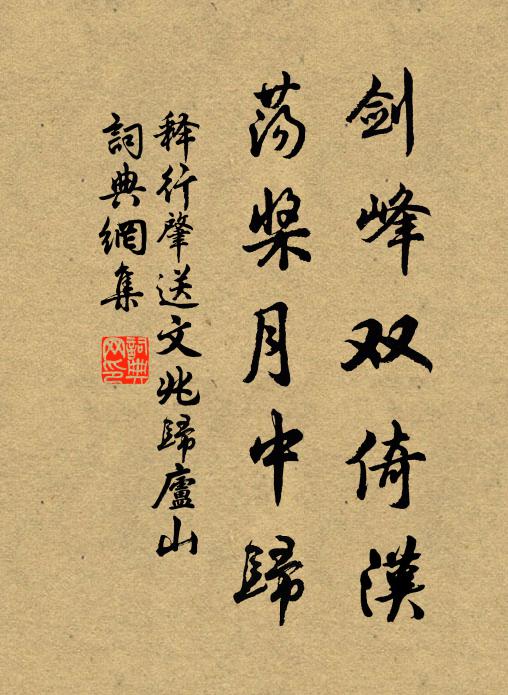 剑峰双倚漢
荡桨月中歸
释行肇送文兆歸廬山
詞典網集
詞典网印